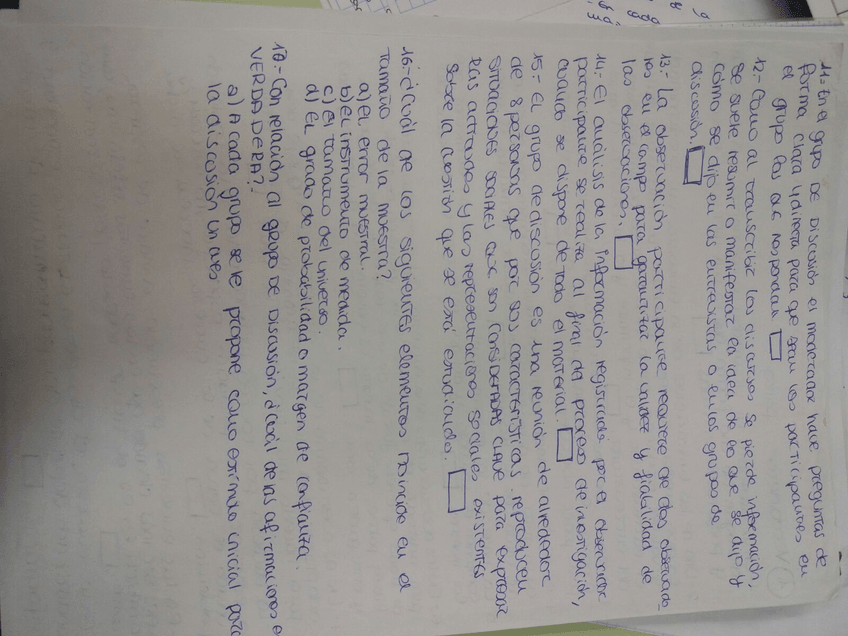 11.- En el grupo DE DISCUSIÓN el moderador hace preguntas de
forma clara y directa para que sean los participantes en
el grupo los que respondan.
12.- Como al transcribir los discursos se pierde información,
se suele resumir o manifestar la idea de lo que se dijo y
cómo se dijo en las entrevistas o en los grupos de
discusión
13.- La observación participante requiere de dos observado-
res en el campo para garantizar la validez y fiabilidad de
las observaciones.
14.- El análisis de la información registrada por el observador
participante se realiza al final del proceso de investigación,
cuando se dispone de todo el material.
15.- El grupo de discusión es una reunión de alrededor
de 8 personas que por sus características reproducen
situaciones sociales que son CONSIDERADAS clave para expresar
las actitudes y las representaciones sociales existentes
sobre la cuestión que se está estudiando.
16.- ¿Cuál de los siguientes elementos no incide en el
tamaño de la muestra?
a) El error muestral.
b) El instrumento de medida.
c) El tamaño del universo.
d) El grado de probabilidad o margen de confianza.
17.- Con relación al grupo DE DISCUSIÓN, ¿cuál de las afirmaciones e
VERDADERA?
a) A cada grupo se le propone como estímulo inicial para
la discusión un